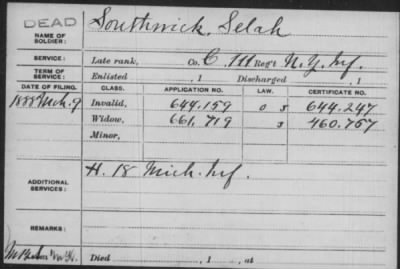 DEAD
NAME OF SOLDIER: Southwick, Selah
SERVICE: Late rank, Co. C, 111 Reg't N.Y. Inf.
TERM OF SERVICE: Enlisted , 1 Discharged , 1
DATE OF FILING. CLASS. APPLICATION NO. LAW. CERTIFICATE NO.
1888 Mch. 9 Invalid, 644.159 644.247
Widow, 661.719 460.757
Minor,
ADDITIONAL SERVICES: H. 18 Mich. Inf.
REMARKS:
Died , 1 , at